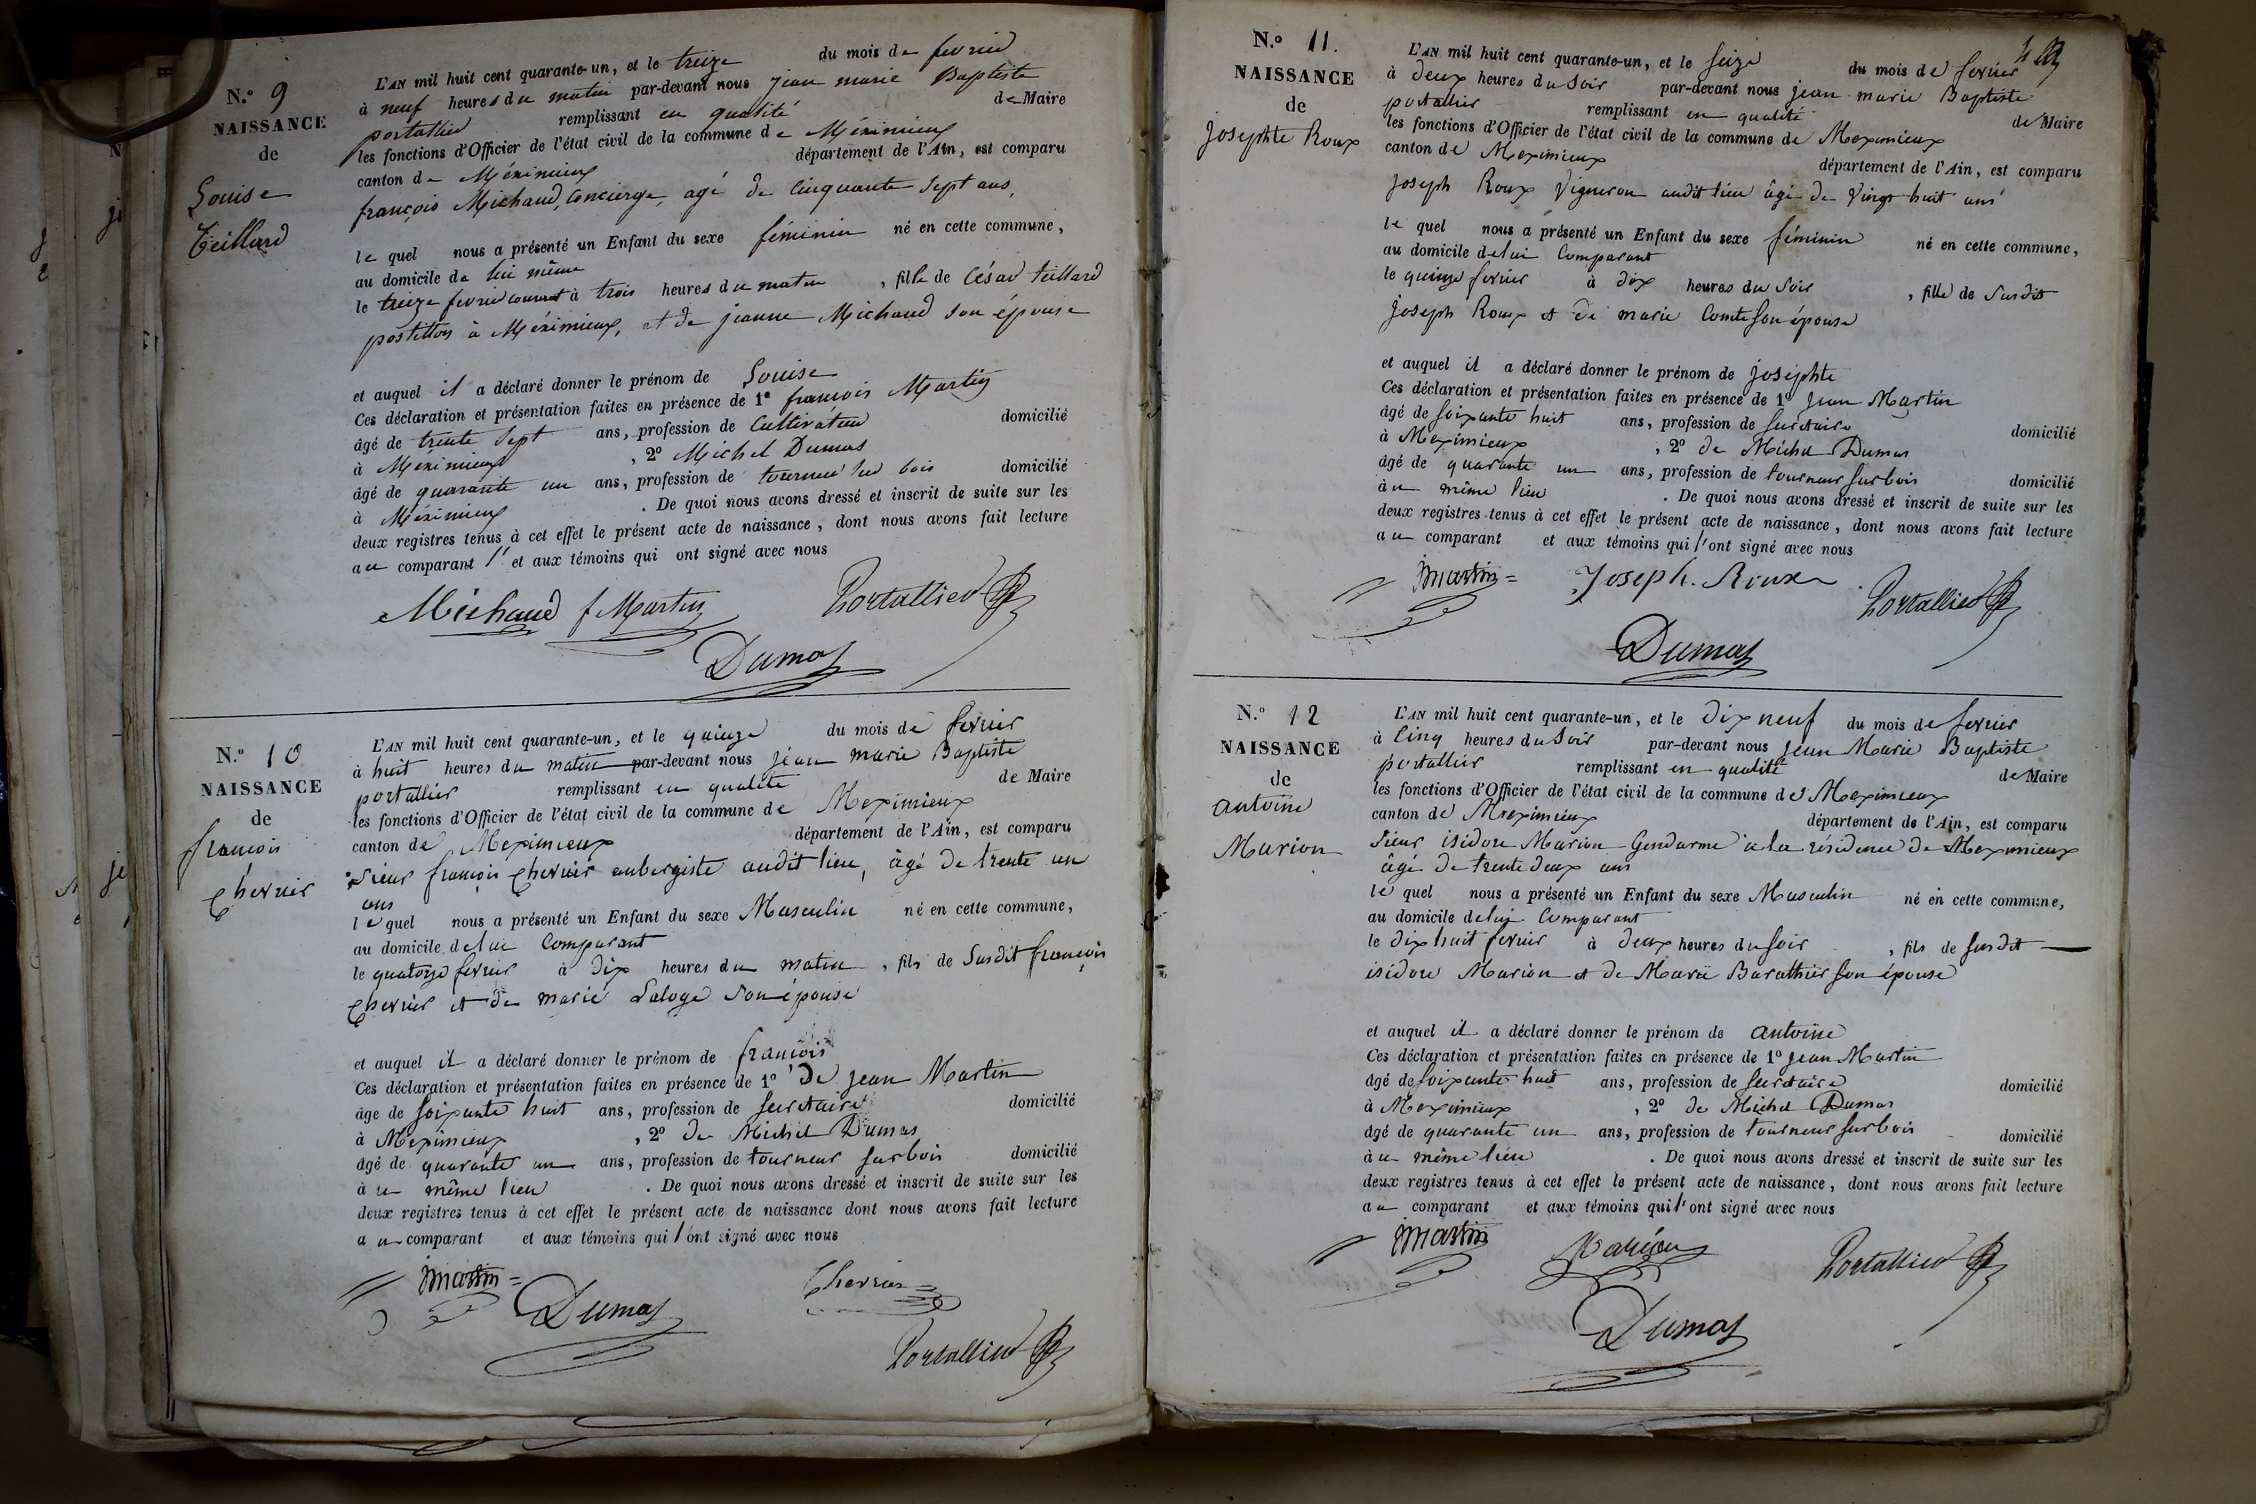 N.º 9
NAISSANCE
de
Louise
Teillard
L'AN mil huit cent quarante-un, et le treize du mois de fevrier
à neuf heures du matin par-devant nous jean marie Baptiste
portallier remplissant en qualité de Maire
les fonctions d'Officier de l'état civil de la commune de Méximieux
canton de Méximieux département de l'Ain, est comparu
françois Michaud, Concierge, agé de Cinquante Sept ans,
le quel nous a présenté un Enfant du sexe féminin né en cette commune,
au domicile de lui même
le treize fevrier courant à trois heures du matin, fille de César teillard
postillon à Méximieux, et de jeanne Michaud son épouse
et auquel il a déclaré donner le prénom de Louise
Ces déclaration et présentation faites en présence de 1º françois Martin
âgé de trente Sept ans, profession de Cultivateur domicilié
à Méximieux, 2º Michel Dumas
âgé de quarante un ans, profession de tourneur sur bois domicilié
à Méximieux. De quoi nous avons dressé et inscrit de suite sur les
deux registres tenus à cet effet le présent acte de naissance, dont nous avons fait lecture
au comparant et aux témoins qui ont signé avec nous
Michaud f Martin Portallier
Dumas
N.º 10
NAISSANCE
de
françois
Chervier
L'AN mil huit cent quarante-un, et le quinze du mois de fevrier
à huit heures du matin par-devant nous jean marie Baptiste
portallier remplissant en qualité de Maire
les fonctions d'Officier de l'état civil de la commune de Meximieux
canton de Meximieux département de l'Ain, est comparu
Sieur françois Chervier aubergiste audit lieu, âgé de trente un
ans
le quel nous a présenté un Enfant du sexe Masculin né en cette commune,
au domicile de lui Comparant
le quatorze fevrier à dix heures du matin, fils de Susdit françois
Chervier et de marie Laloge son épouse
et auquel il a déclaré donner le prénom de françois
Ces déclaration et présentation faites en présence de 1º de jean Martin
âge de soixante huit ans, profession de secretaire domicilié
à Meximieux, 2º de Michel Dumas
âgé de quarante un ans, profession de tourneur sur bois domicilié
au même lieu. De quoi nous avons dressé et inscrit de suite sur les
deux registres tenus à cet effet le présent acte de naissance dont nous avons fait lecture
au comparant et aux témoins qui l'ont signé avec nous
jmartin Dumas Chervier
Portallier
N.º 11.
NAISSANCE
de
Josephte Roux
L'AN mil huit cent quarante-un, et le seize du mois de fevrier
à deux heures du Soir par-devant nous jean marie Baptiste
portallier remplissant en qualité de Maire
les fonctions d'Officier de l'état civil de la commune de Meximieux
canton de Meximieux département de l'Ain, est comparu
joseph Roux Vigneron audit lieu âgé de Vingt huit ans
le quel nous a présenté un Enfant du sexe féminin né en cette commune,
au domicile de lui Comparant
le quinze fevrier à dix heures du Soir, fille de Susdit
joseph Roux et de marie Comte son épouse
et auquel il a déclaré donner le prénom de josephte
Ces déclaration et présentation faites en présence de 1º Jean Martin
âgé de soixante huit ans, profession de secretaire domicilié
à Meximieux, 2º de Michel Dumas
âgé de quarante un ans, profession de tourneur sur bois domicilié
au même lieu. De quoi nous avons dressé et inscrit de suite sur les
deux registres tenus à cet effet le présent acte de naissance, dont nous avons fait lecture
au comparant et aux témoins qui l'ont signé avec nous
jmartin Joseph. Roux Portallier
Dumas
N.º 12
NAISSANCE
de
antoine
Marion
L'AN mil huit cent quarante-un, et le dix neuf du mois de fevrier
à Cinq heures du Soir par-devant nous jean Marie Baptiste
portallier remplissant en qualité de Maire
les fonctions d'Officier de l'état civil de la commune de Meximieux
canton de Meximieux département de l'Ain, est comparu
Sieur isidore Marion Gendarme à la résidence de Meximieux
âgé de trente deux ans
le quel nous a présenté un Enfant du sexe Masculin né en cette commune,
au domicile de lui Comparant
le dix huit fevrier à deux heures du soir, fils de susdit
isidore Marion et de Marie Barathier son épouse
et auquel il a déclaré donner le prénom de antoine
Ces déclaration et présentation faites en présence de 1º jean Martin
âgé de soixante huit ans, profession de secretaire domicilié
à Meximieux, 2º de Michel Dumas
âgé de quarante un ans, profession de tourneur sur bois domicilié
au même lieu. De quoi nous avons dressé et inscrit de suite sur les
deux registres tenus à cet effet le présent acte de naissance, dont nous avons fait lecture
au comparant et aux témoins qui l'ont signé avec nous
jmartin Marion Portallier
Dumas